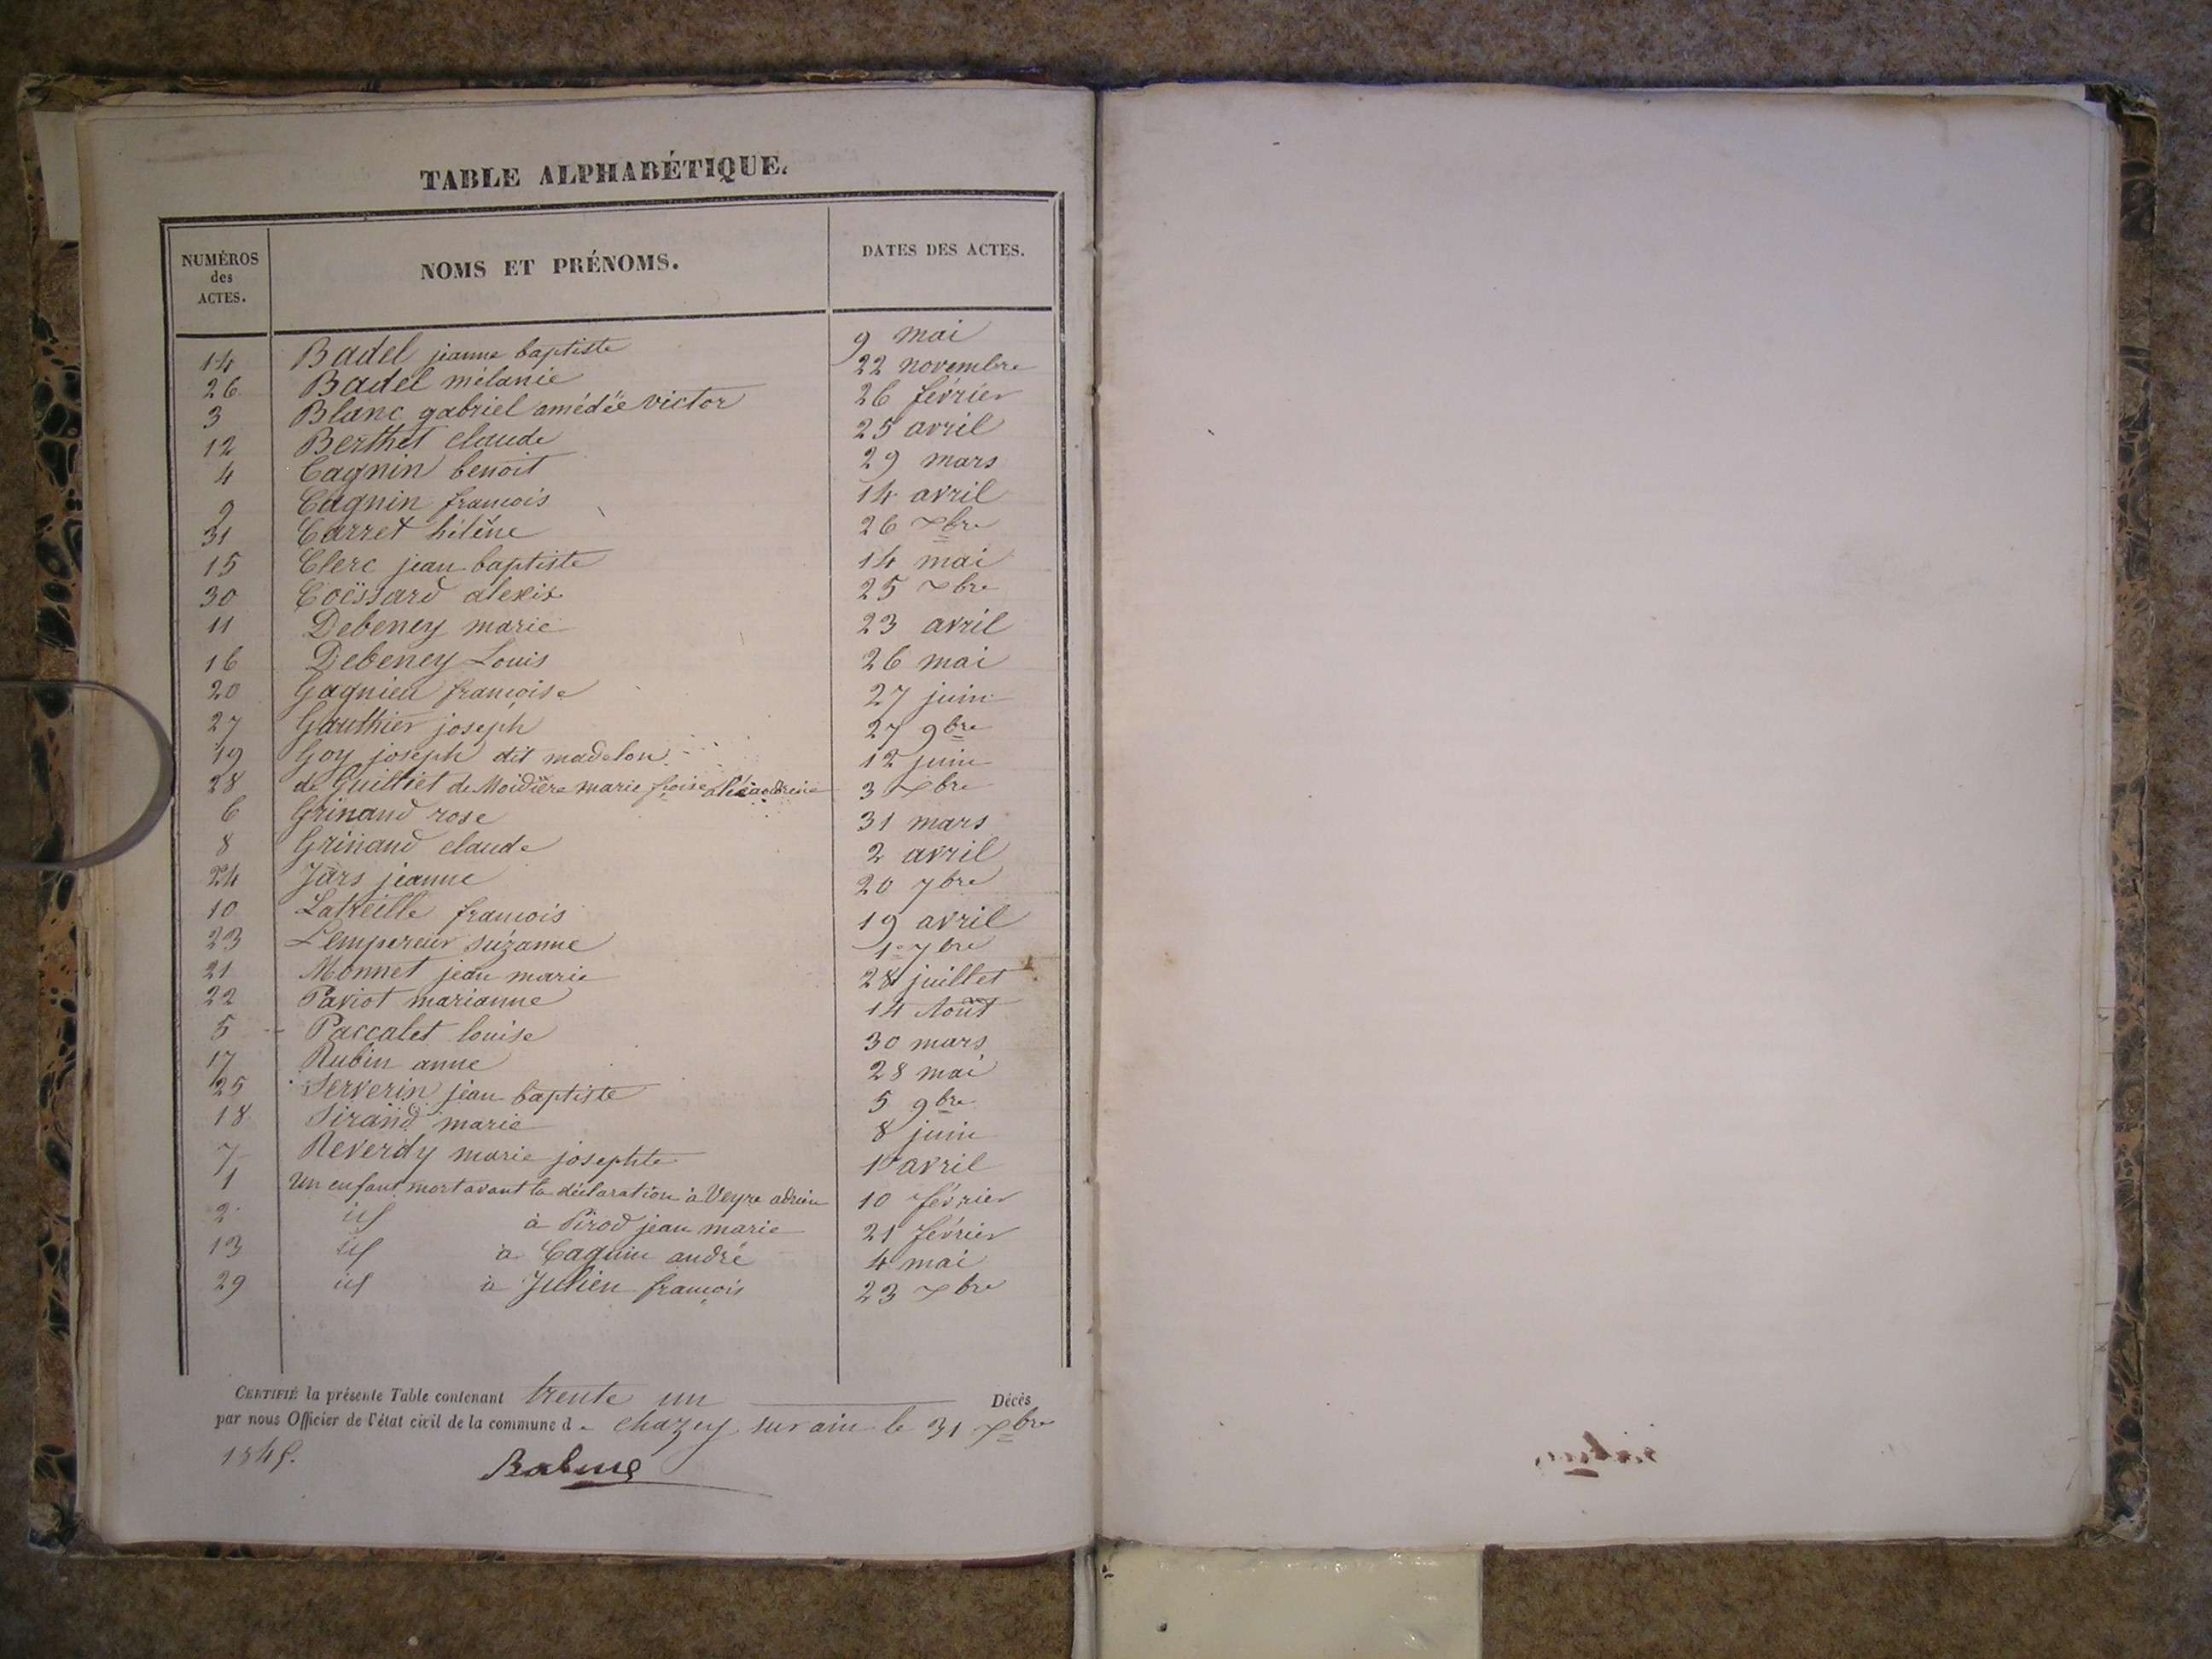 TABLE ALPHABÉTIQUE.
NUMÉROS des ACTES. NOMS ET PRÉNOMS. DATES DES ACTES.
14 Badel jeanne baptiste 9 mai
26 Badel mélanie 22 novembre
3 Blanc gabriel amédée victor 26 février
12 Berthet claude 25 avril
4 Cagnin benoit 29 mars
9 Cagnin françois 14 avril
31 Carret hélène 26 xbre
15 Clerc jean baptiste 14 mai
30 Coëssard alexis 25 xbre
11 Debeney marie 23 avril
16 Debeney Louis 26 mai
20 Gagnieu françoise 27 juin
27 Gauthier joseph 27 9bre
19 Goy joseph dit madelon 12 juin
28 de Guilliet de Moidière marie froise 3 xbre
6 Grinand rose 31 mars
8 Grinand claude 2 avril
24 Jars jeanne 20 7bre
10 Latreille françois 19 avril
23 Lempereur suzanne 1er 7bre
21 Monnet jean marie 28 juillet
22 Paviot marianne 14 Août
5 Paccalet louise 30 mars
17 Rubin anne 28 mai
25 Serverin jean baptiste 5 9bre
18 Sirand marie 8 juin
7 Reverdy marie josephte 1er avril
1 Un enfant mort avant la déclaration à Veyre adrien 10 février
2 id à Pirod jean marie 21 février
13 id à Cagnin andré 4 mai
29 id à Julien françois 23 xbre
CERTIFIÉ la présente Table contenant trente un Décès
par nous Officier de l'état civil de la commune de chazey sur ain le 31 xbre
1845.
Balme